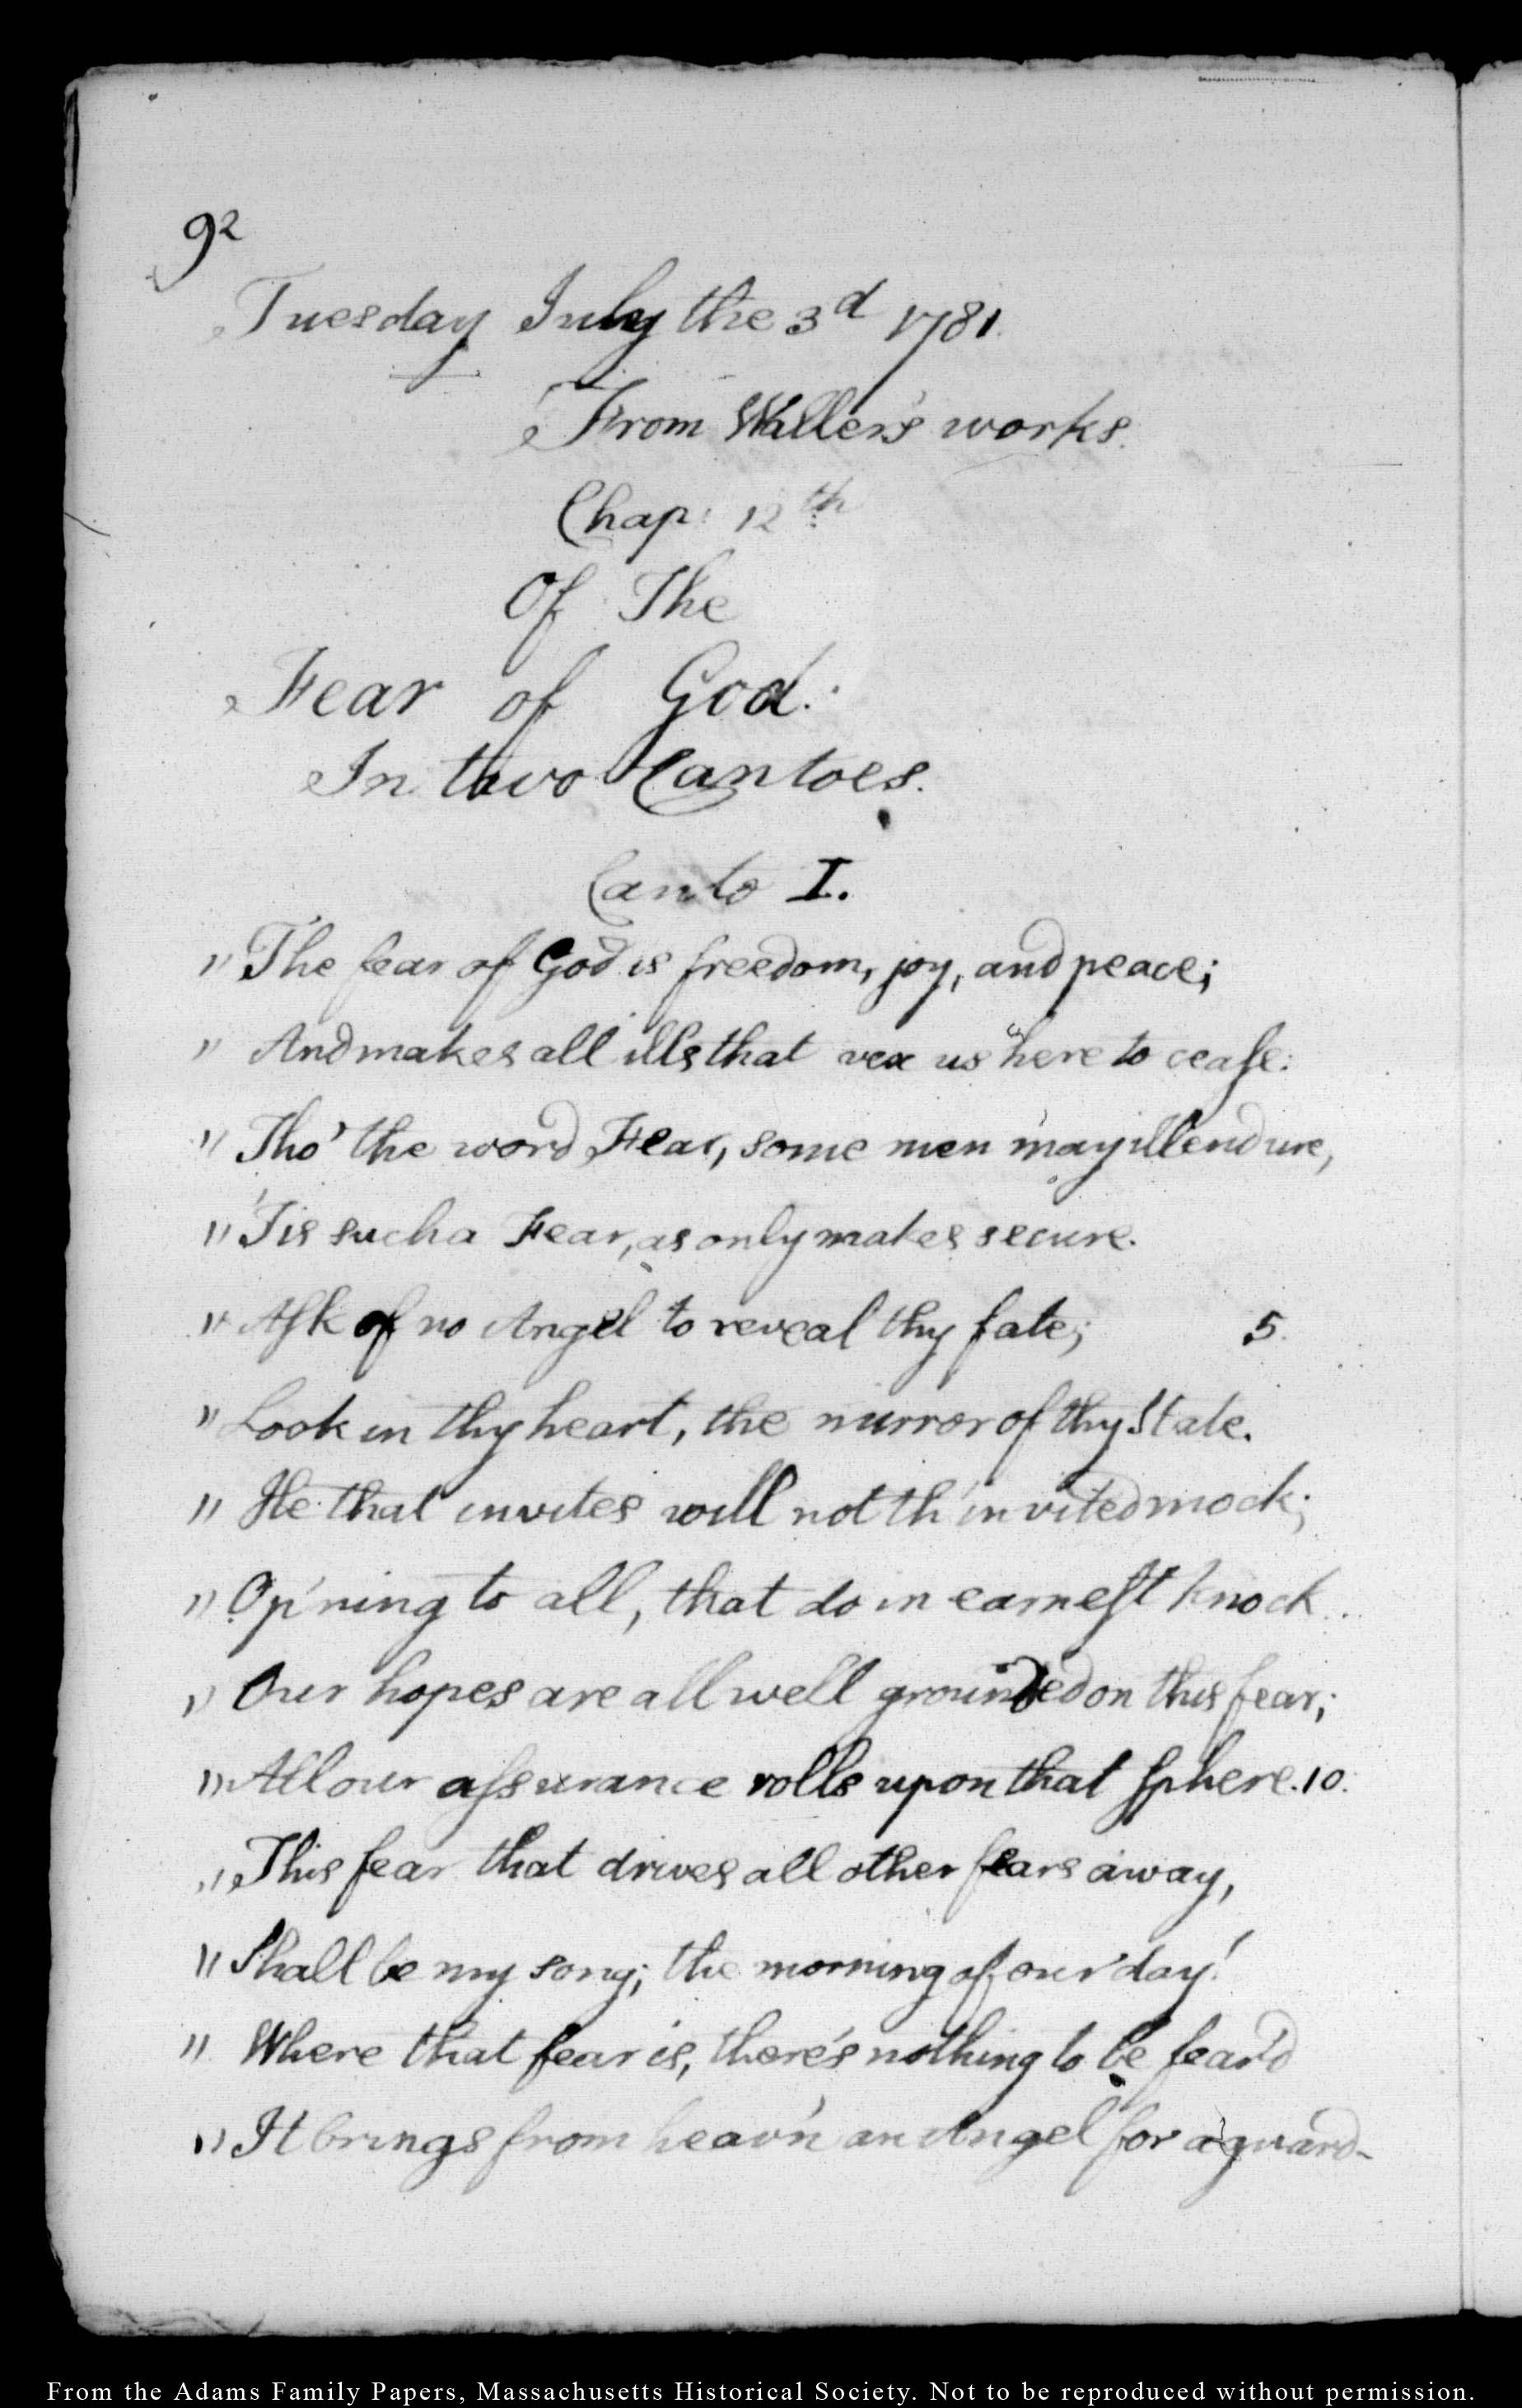 92
Tuesday July the 3d 1781.
From Waller's works.
Chap: 12th
Of The
Fear of God.
In two Cantoes.
Canto I.
" The fear of God is freedom, joy, and peace;
" And makes all ills that vex us here to ceaſe:
" Tho' the word Fear, some men may ill endure,
" 'Tis such a Fear, as only makes secure.
" Aſk of no Angel to reveal thy fate; 5.
" Look in thy heart, the mirror of thy State.
" He that invites will not th' invited mock;
" Op'ning to all, that do in earneſt knock.
" Our hopes are all well grounded on this fear;
" All our aſsurance rolls upon that ſphere. 10.
" This fear that drives all other fears away,
" Shall be my song; the morning of our day!
" Where that fear is, there's nothing to be fear'd
" It brings from heav'n an Angel for a guard-
From the Adams Family Papers, Massachusetts Historical Society. Not to be reproduced without permission.